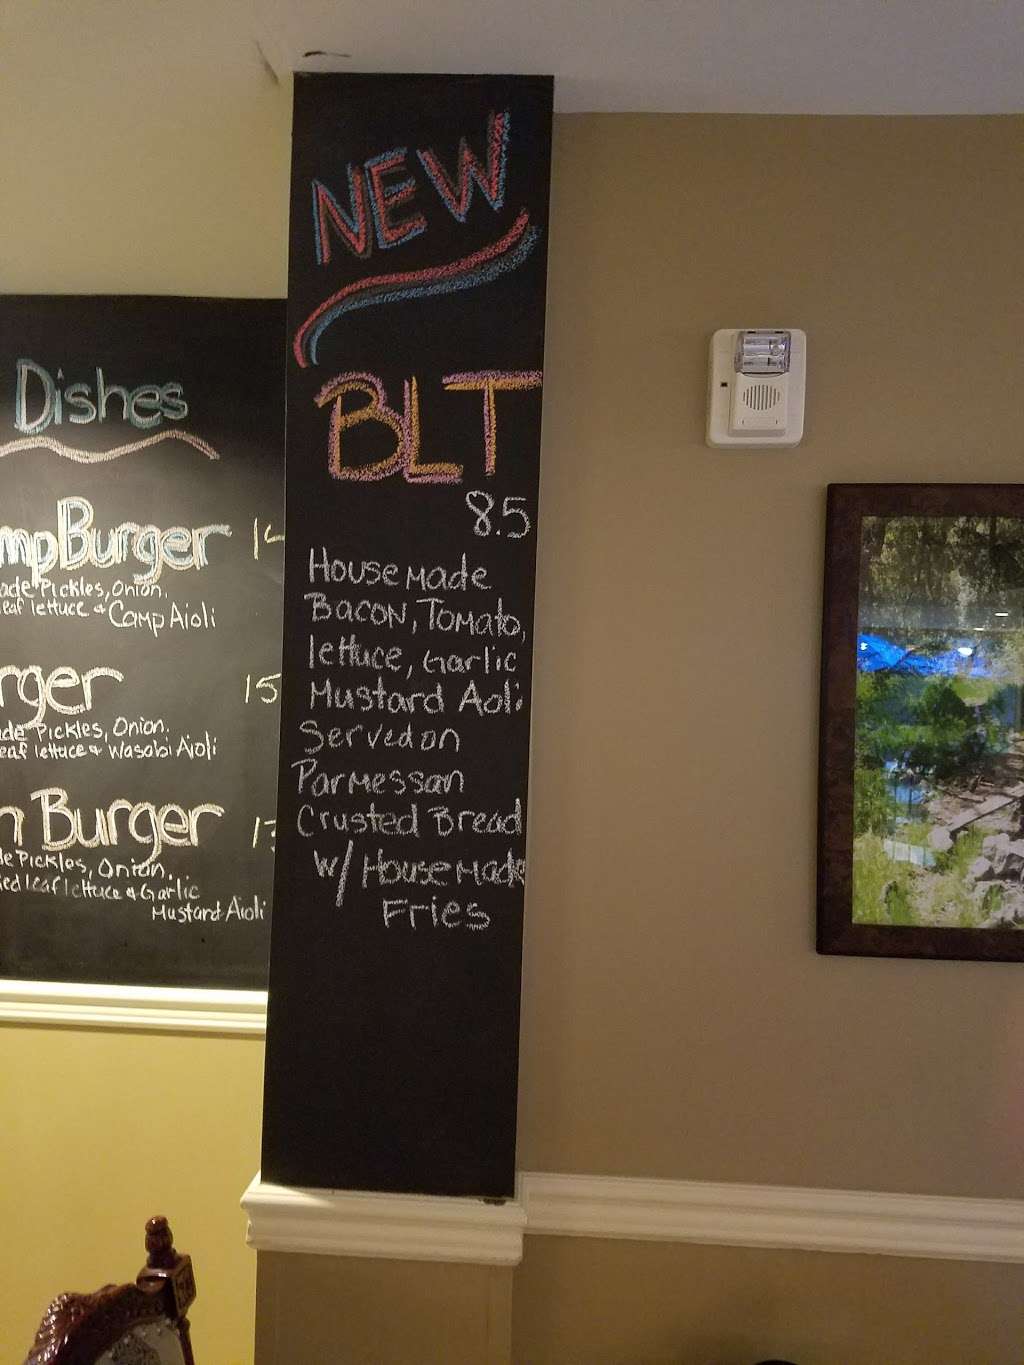 Dishes
mpBurger
ade Pickles, Onion,
eaf lettuce & Camp Aioli
rger 15
ade Pickles, Onion.
eaf lettuce & Wasabi Aioli
n Burger
de Pickles, Onion,
ied leaf lettuce & Garlic
Mustard Aioli
NEW
BLT
8.5
House made
Bacon, Tomato,
lettuce, Garlic
Mustard Aoli
Served on
Parmessan
Crusted Bread
w/ House Made
Fries